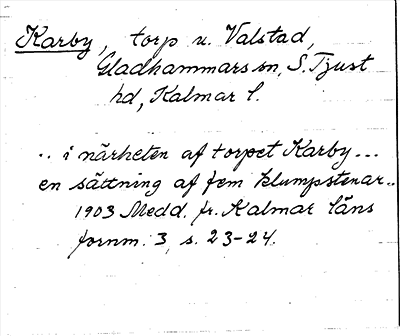 Karby, torp u. Valstad,
Gladhammars sn, S. Tjust
hd, Kalmar l.
.. i närheten af torpet Karby...
en sättning af fem klumpstenar..
1903 Medd. fr. Kalmar läns
fornm. 3, s. 23-24.